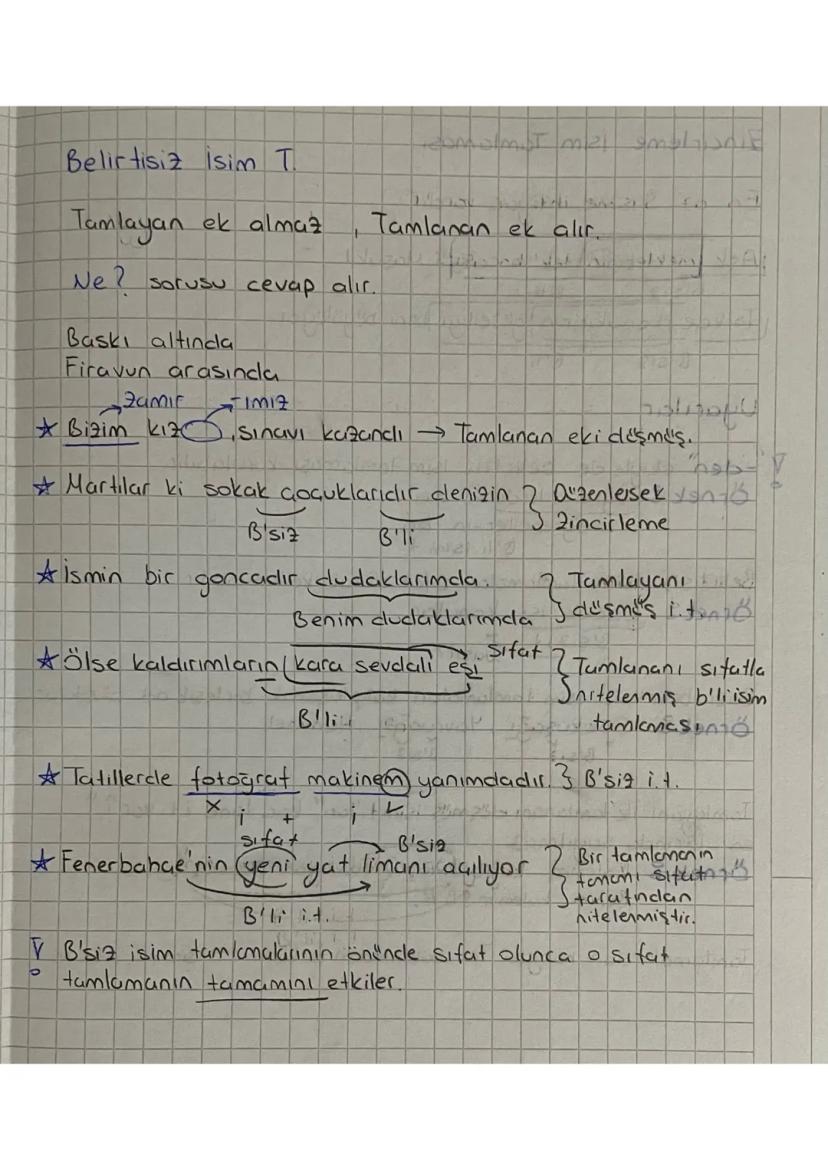 Belirtisiz İsim T.
Tamlayan ek almaz , Tamlanan ek alır.
Ne? sorusu cevap alır.
Baskı altında
Firavun arasında
zamir -imiz
☆ Bizim kız , sınavı kazandı → Tamlanan eki düşmüş.
☆ Martılar ki sokak çocuklarıdır denizin } Düzenlersek
B'siz B'li zincirleme
☆ İsmin bir goncadır dudaklarımda. } Tamlayanı
Benim dudaklarımda düşmüş i.t.
☆ Ölse kaldırımların (kara sevdalı eşi sıfat } Tamlananı sıfatla
nitelenmiş b'li isim
B'li tamlaması
☆ Tatillerde fotoğraf makinem yanımdadır. } B'siz i.t.
x i + i ✓
sıfat B'siz
☆ Fenerbahçe'nin (yeni yat limanı açılıyor } Bir tamlamanın
tamamı sıfat
tarafından
B'li i.t. nitelenmiştir.
! B'siz isim tamlamalarının önünde sıfat olunca o sıfat
tamlamanın tamamını etkiler.